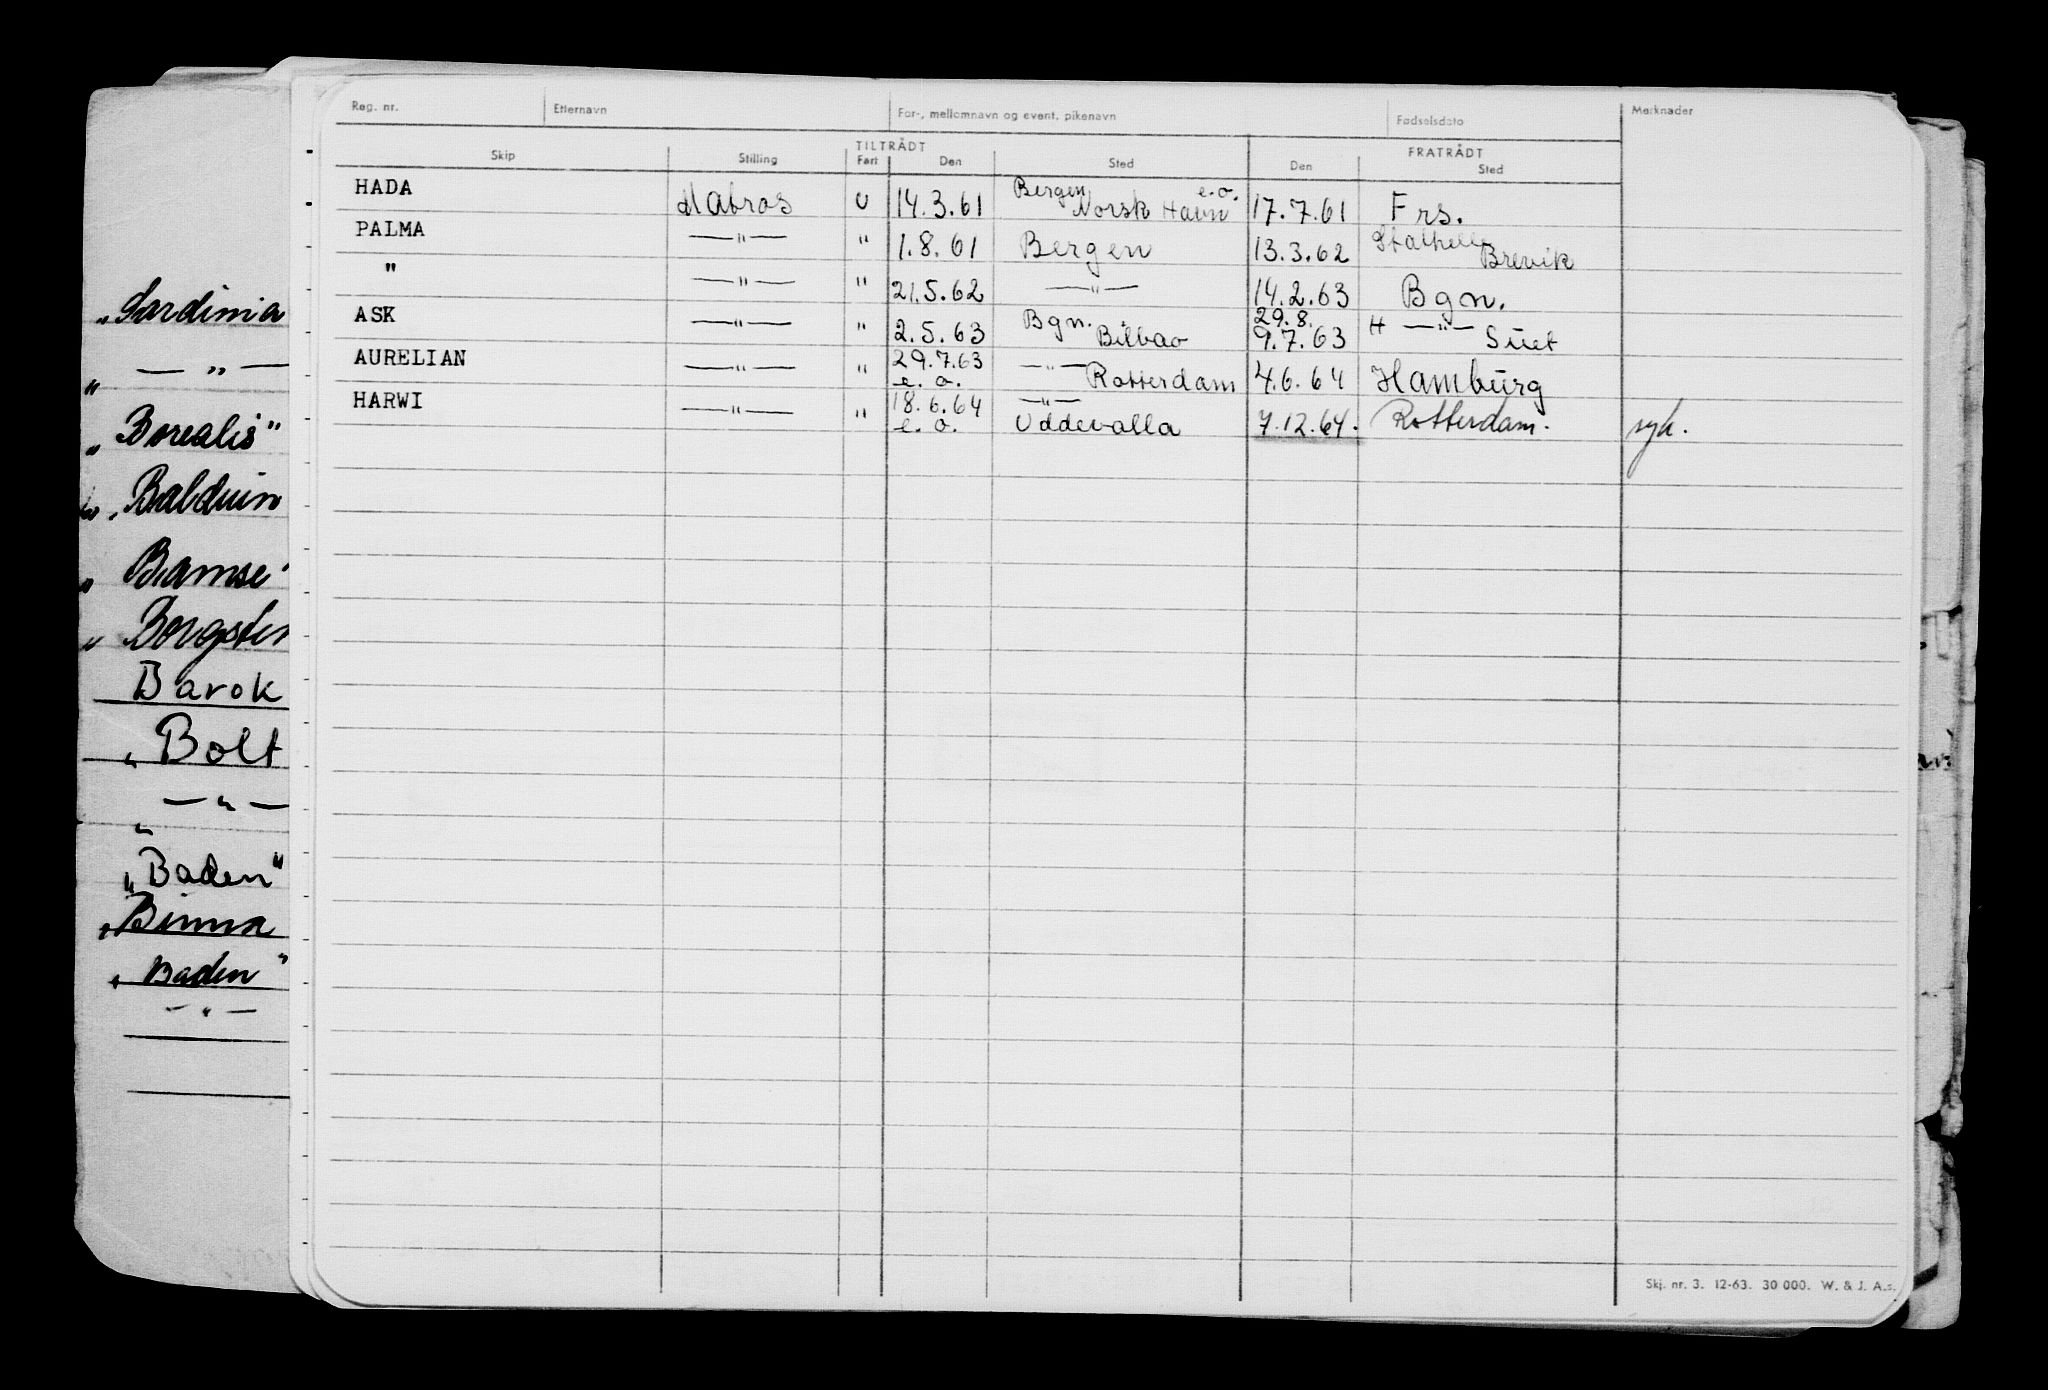 Reg. nr. Etternavn For-, mellomnavn og event. pikenavn Fødselsdato Merknader
TILTRÅDT FRATRÅDT
Skip Stilling Fart Den Sted Den Sted
HADA Matros U 14.3.61 Bergen e.o. Norsk Havn 17.7.61 Frs.
PALMA —"— " 1.8.61 Bergen 13.3.62 Stathelle Brevik
" —"— " 21.5.62 —"— 14.2.63 Bgn.
ASK —"— " 2.5.63 Bgn. Bilbao 29.8. 9.7.63 H —"— Suet
AURELIAN —"— " 29.7.63 e.o. —"— Rotterdam 4.6.64 Hamburg
HARWI —"— " 18.6.64 e.o. —"— Uddevalla 7.12.64. Rotterdam. syk.
"Sardinia
" —"—
"Borealis"
"Balduin
" Bamse"
" Borgsten
Barok
"Bolt
" —"—
"Baden"
"Binna
"Baden"
—"—
Skj. nr. 3. 12-63. 30 000. W. & J. A.s.